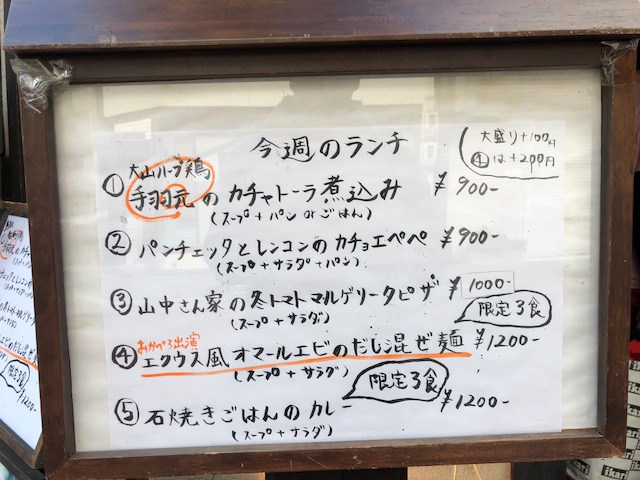 今週のランチ
大盛り+100円
④は+200円
大山ハーブ鶏
① 手羽元のカチャトーラ煮込み ¥900-
(スープ+パン or ごはん)
② パンチェッタとレンコンのカチョエペペ ¥900-
(スープ+サラダ+パン)
③ 山中さん家の冬トマトマルゲリータピザ ¥1000-
(スープ+サラダ)
限定3食
おかべろ出演
④ エクウス風オマールエビのだし混ぜ麺 ¥1200-
(スープ+サラダ)
限定3食
⑤ 石焼きごはんのカレー ¥1200-
(スープ+サラダ)
ikari